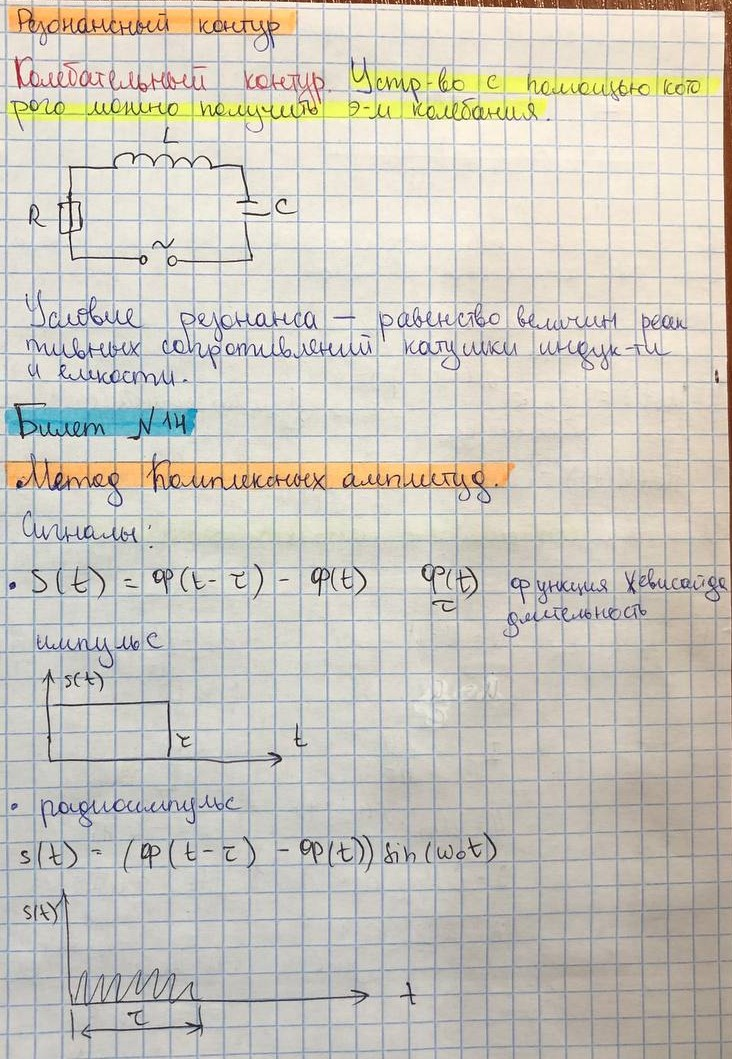 Резонансный контур
Колебательный контур. Устр-во с помощью кото
рого можно получить э-м колебания.
L
R
C
~
Условие резонанса — равенство величин реак
тивных сопротивлений катушки индук-ти
и емкости.
Билет N 14
• Метод Комплексных амплитуд.
Сигналы:
• S(t) = φ(t-τ) - φ(t) φ(t) функция Хевисайда
τ длительность
импульс
s(t)
τ
t
• радиоимпульс
s(t) = (φ(t-τ) - φ(t)) sin(ω₀t)
s(t)
t
τ